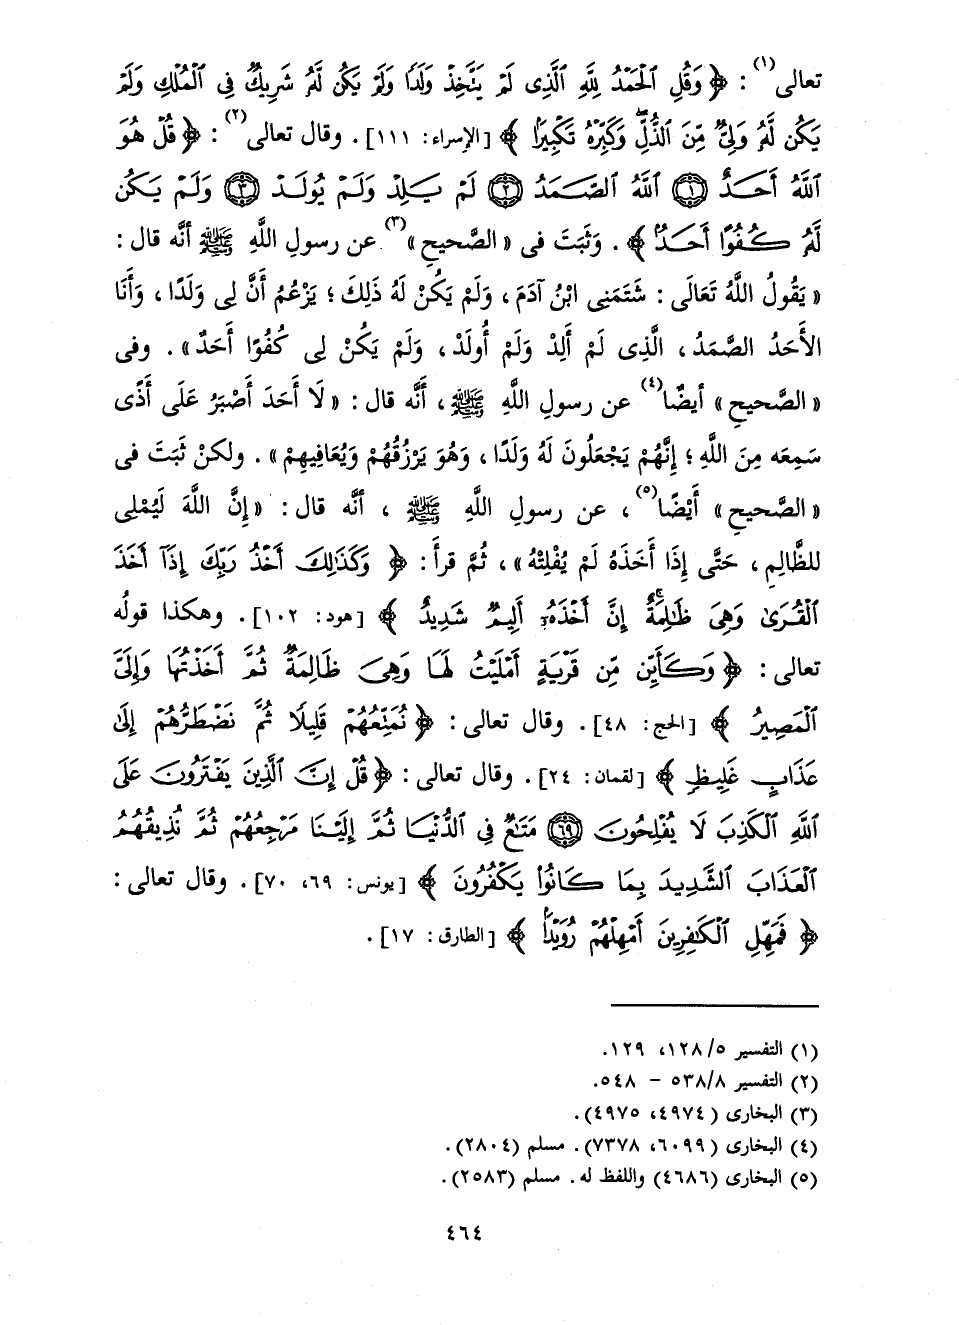 تعالى(١) : ﴿ وَقُلِ ٱلْحَمْدُ لِلَّهِ ٱلَّذِى لَمْ يَتَّخِذْ وَلَدًا وَلَمْ يَكُن لَّهُ شَرِيكٌ فِى ٱلْمُلْكِ وَلَمْ
يَكُن لَّهُ وَلِىٌّ مِّنَ ٱلذُّلِّ وَكَبِّرْهُ تَكْبِيرًا ﴾ [الإسراء: ١١١]. وقال تعالى(٢) : ﴿ قُلْ هُوَ
ٱللَّهُ أَحَدٌ ﴿١﴾ ٱللَّهُ ٱلصَّمَدُ ﴿٢﴾ لَمْ يَلِدْ وَلَمْ يُولَدْ ﴿٣﴾ وَلَمْ يَكُن
لَّهُ كُفُوًا أَحَدٌ ﴾ . وَثَبَتَ فى « الصَّحيحِ »(٣) عن رسولِ اللَّهِ ﷺ أنَّه قال :
« يَقُولُ اللَّهُ تَعَالَى : شَتَمَنِى ابْنُ آدَمَ ، وَلَمْ يَكُنْ لَهُ ذَلِكَ ؛ يَزْعُمُ أَنَّ لِى وَلَدًا ، وَأَنَا
الأَحَدُ الصَّمَدُ ، الَّذِى لَمْ أَلِدْ وَلَمْ أُولَدْ ، وَلَمْ يَكُنْ لِى كُفُوًا أَحَدٌ » . وفى
« الصَّحيحِ » أيضًا(٤) عن رسولِ اللَّهِ ﷺ ، أنَّه قال : « لَا أَحَدَ أَصْبَرُ عَلَى أَذًى
سَمِعَه مِنَ اللَّهِ ؛ إِنَّهُمْ يَجْعَلُونَ لَهُ وَلَدًا ، وَهُوَ يَرْزُقُهُمْ وَيُعَافِيهِمْ » . ولكنْ ثَبَتَ فى
« الصَّحيحِ » أَيْضًا(٥) ، عن رسولِ اللَّهِ ﷺ ، أنَّه قال : « إِنَّ اللَّهَ لَيُمْلِى
للظَّالِمِ ، حَتَّى إِذَا أَخَذَهُ لَمْ يُفْلِتْهُ » ، ثُمَّ قرأَ : ﴿ وَكَذَٰلِكَ أَخْذُ رَبِّكَ إِذَآ أَخَذَ
ٱلْقُرَىٰ وَهِىَ ظَٰلِمَةٌ إِنَّ أَخْذَهُۥٓ أَلِيمٌ شَدِيدٌ ﴾ [هود: ١٠٢]. وهكذا قولُه
تعالى : ﴿ وَكَأَيِّن مِّن قَرْيَةٍ أَمْلَيْتُ لَهَا وَهِىَ ظَالِمَةٌ ثُمَّ أَخَذْتُهَا وَإِلَىَّ
ٱلْمَصِيرُ ﴾ [الحج: ٤٨]. وقال تعالى : ﴿ نُمَتِّعُهُمْ قَلِيلًا ثُمَّ نَضْطَرُّهُمْ إِلَىٰ
عَذَابٍ غَلِيظٍ ﴾ [لقمان: ٢٤]. وقال تعالى : ﴿ قُلْ إِنَّ ٱلَّذِينَ يَفْتَرُونَ عَلَى
ٱللَّهِ ٱلْكَذِبَ لَا يُفْلِحُونَ ﴿٦٩﴾ مَتَٰعٌ فِى ٱلدُّنْيَا ثُمَّ إِلَيْنَا مَرْجِعُهُمْ ثُمَّ نُذِيقُهُمُ
ٱلْعَذَابَ ٱلشَّدِيدَ بِمَا كَانُوا۟ يَكْفُرُونَ ﴾ [يونس: ٦٩، ٧٠]. وقال تعالى :
﴿ فَمَهِّلِ ٱلْكَٰفِرِينَ أَمْهِلْهُمْ رُوَيْدًا ﴾ [الطارق: ١٧].
(١) التفسير ٥/ ١٢٨، ١٢٩.
(٢) التفسير ٨/ ٥٣٨ - ٥٤٨.
(٣) البخارى (٤٩٧٤، ٤٩٧٥).
(٤) البخارى (٦٠٩٩، ٧٣٧٨). مسلم (٢٨٠٤).
(٥) البخارى (٤٦٨٦) واللفظ له. مسلم (٢٥٨٣).
٤٦٤